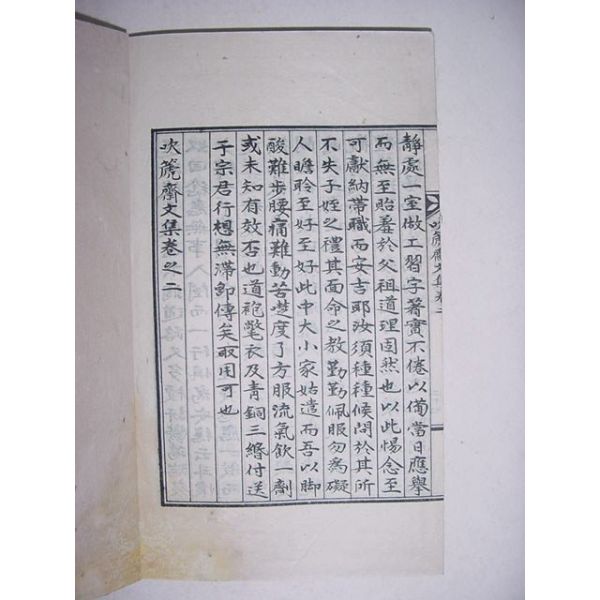 靜處一室做工習字著實不倦以備當日應擧
而無至貽羞於父祖道理固然也以此惕念至
可獻納帶職而安吉耶汝須種種候問於其所
不失子姪之禮其面命之敎勤勤佩服勿爲礙
人瞻聆至好至好此中大小家姑遣而吾以脚
酸難步腰痛難動苦楚度了方服流氣飮一劑
或未知有效否也道袍氅衣及靑銅三緡付送
于宗君行想無滯卽傳矣取用可也
吹篪齋文集卷之二